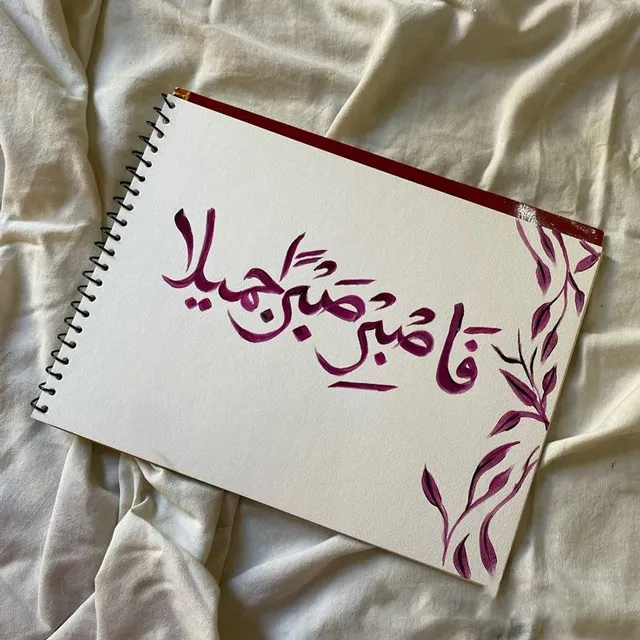 فَاصْبِرْ صَبْرًا جميلا